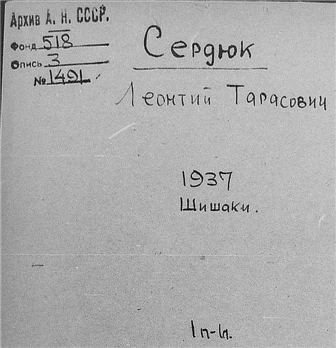 Архив А. Н. СССР.
Фонд 518
Опись 3
№ 1491
Сердюк
Леонтий Тарасович
1937
Шишаки.